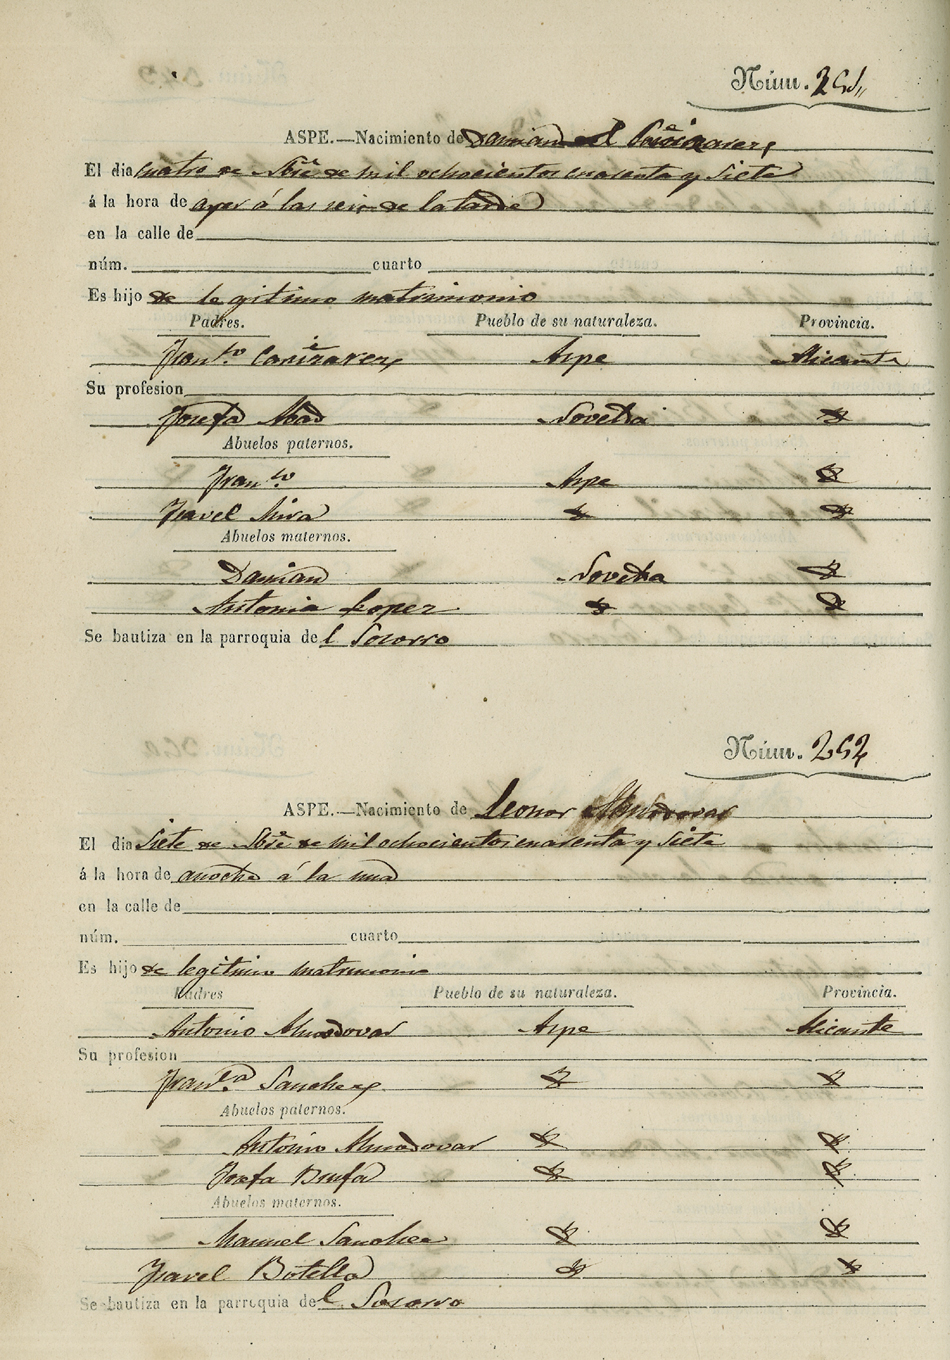 Núm. 251
ASPE.—Nacimiento de Damian Cañizares
El dia cuatro de Sbre de mil ochocientos cuarenta y siete
á la hora de ayer á las seis de la tarde
en la calle de
núm. cuarto
Es hijo de legitimo matrimonio
Padres. Pueblo de su naturaleza. Provincia.
Franco. Cañizares Aspe Alicante
Su profesion
Josefa Abad Novelda
Abuelos paternos.
Franco. Aspe
Ysavel Mira
Abuelos maternos.
Damian Novelda
Antonia Lopez
Se bautiza en la parroquia del Socorro
Núm. 252
ASPE.—Nacimiento de Leonor Almodovar
El dia Siete de Sbre de mil ochocientos cuarenta y siete
á la hora de anoche á la una
en la calle de
núm. cuarto
Es hijo de legitimo matrimonio
Padres Pueblo de su naturaleza. Provincia.
Antonio Almodovar Aspe Alicante
Su profesion
Franca. Sanchez
Abuelos paternos.
Antonio Almodovar
Josefa
Abuelos maternos.
Manuel Sanchez
Ysavel Botella
Se bautiza en la parroquia del Socorro